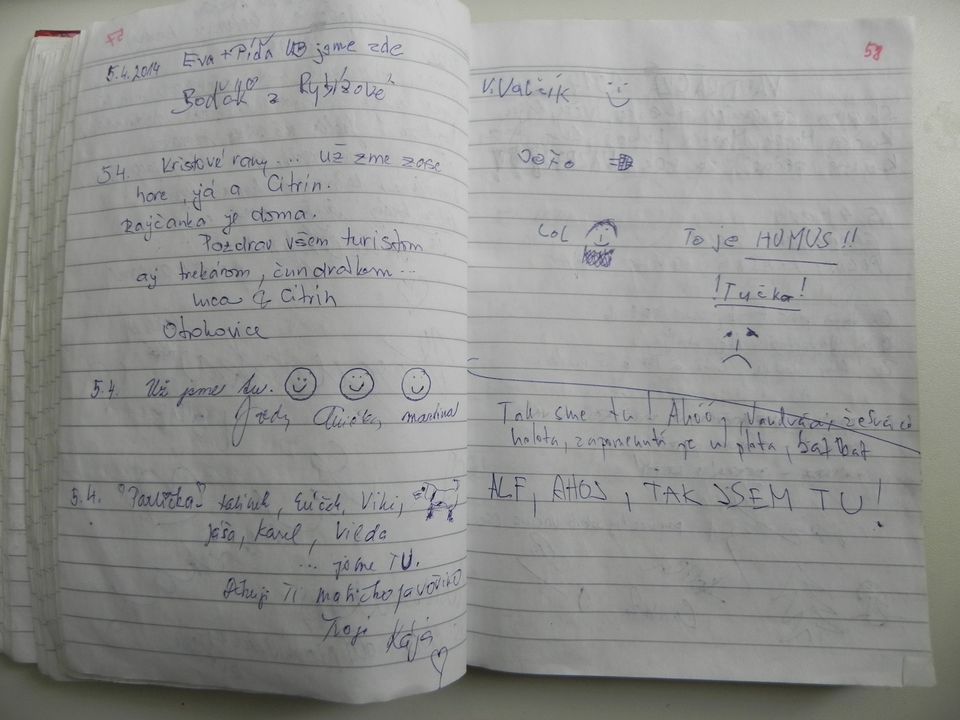 57
5.4.2014 Eva + Píďa UB jsme zde
Boďák z Rybízové
5.4. Kristové rany ... už zme zase
hore, já a Citrín.
Zajčanka je doma.
Pozdrav všem turistom
aj trekárom, čundrálkom ...
Luca & Citrín
Otrokovice
5.4. Už jsme tu.
martina
5.4. "Pavlička" Eliček, Viki,
Jáša, Karel, Vilda
... jsme TU.
Děkuji Ti matičko javořino
Tvoji Kája
58
V. Valčík
Jořo
Lol
To je HUMUS!!
!Tyčka!
Tak sme tu! Ahóó,
holota, zapomenutá je u plata, bat bat
ALF, AHOJ, TAK JSEM TU!